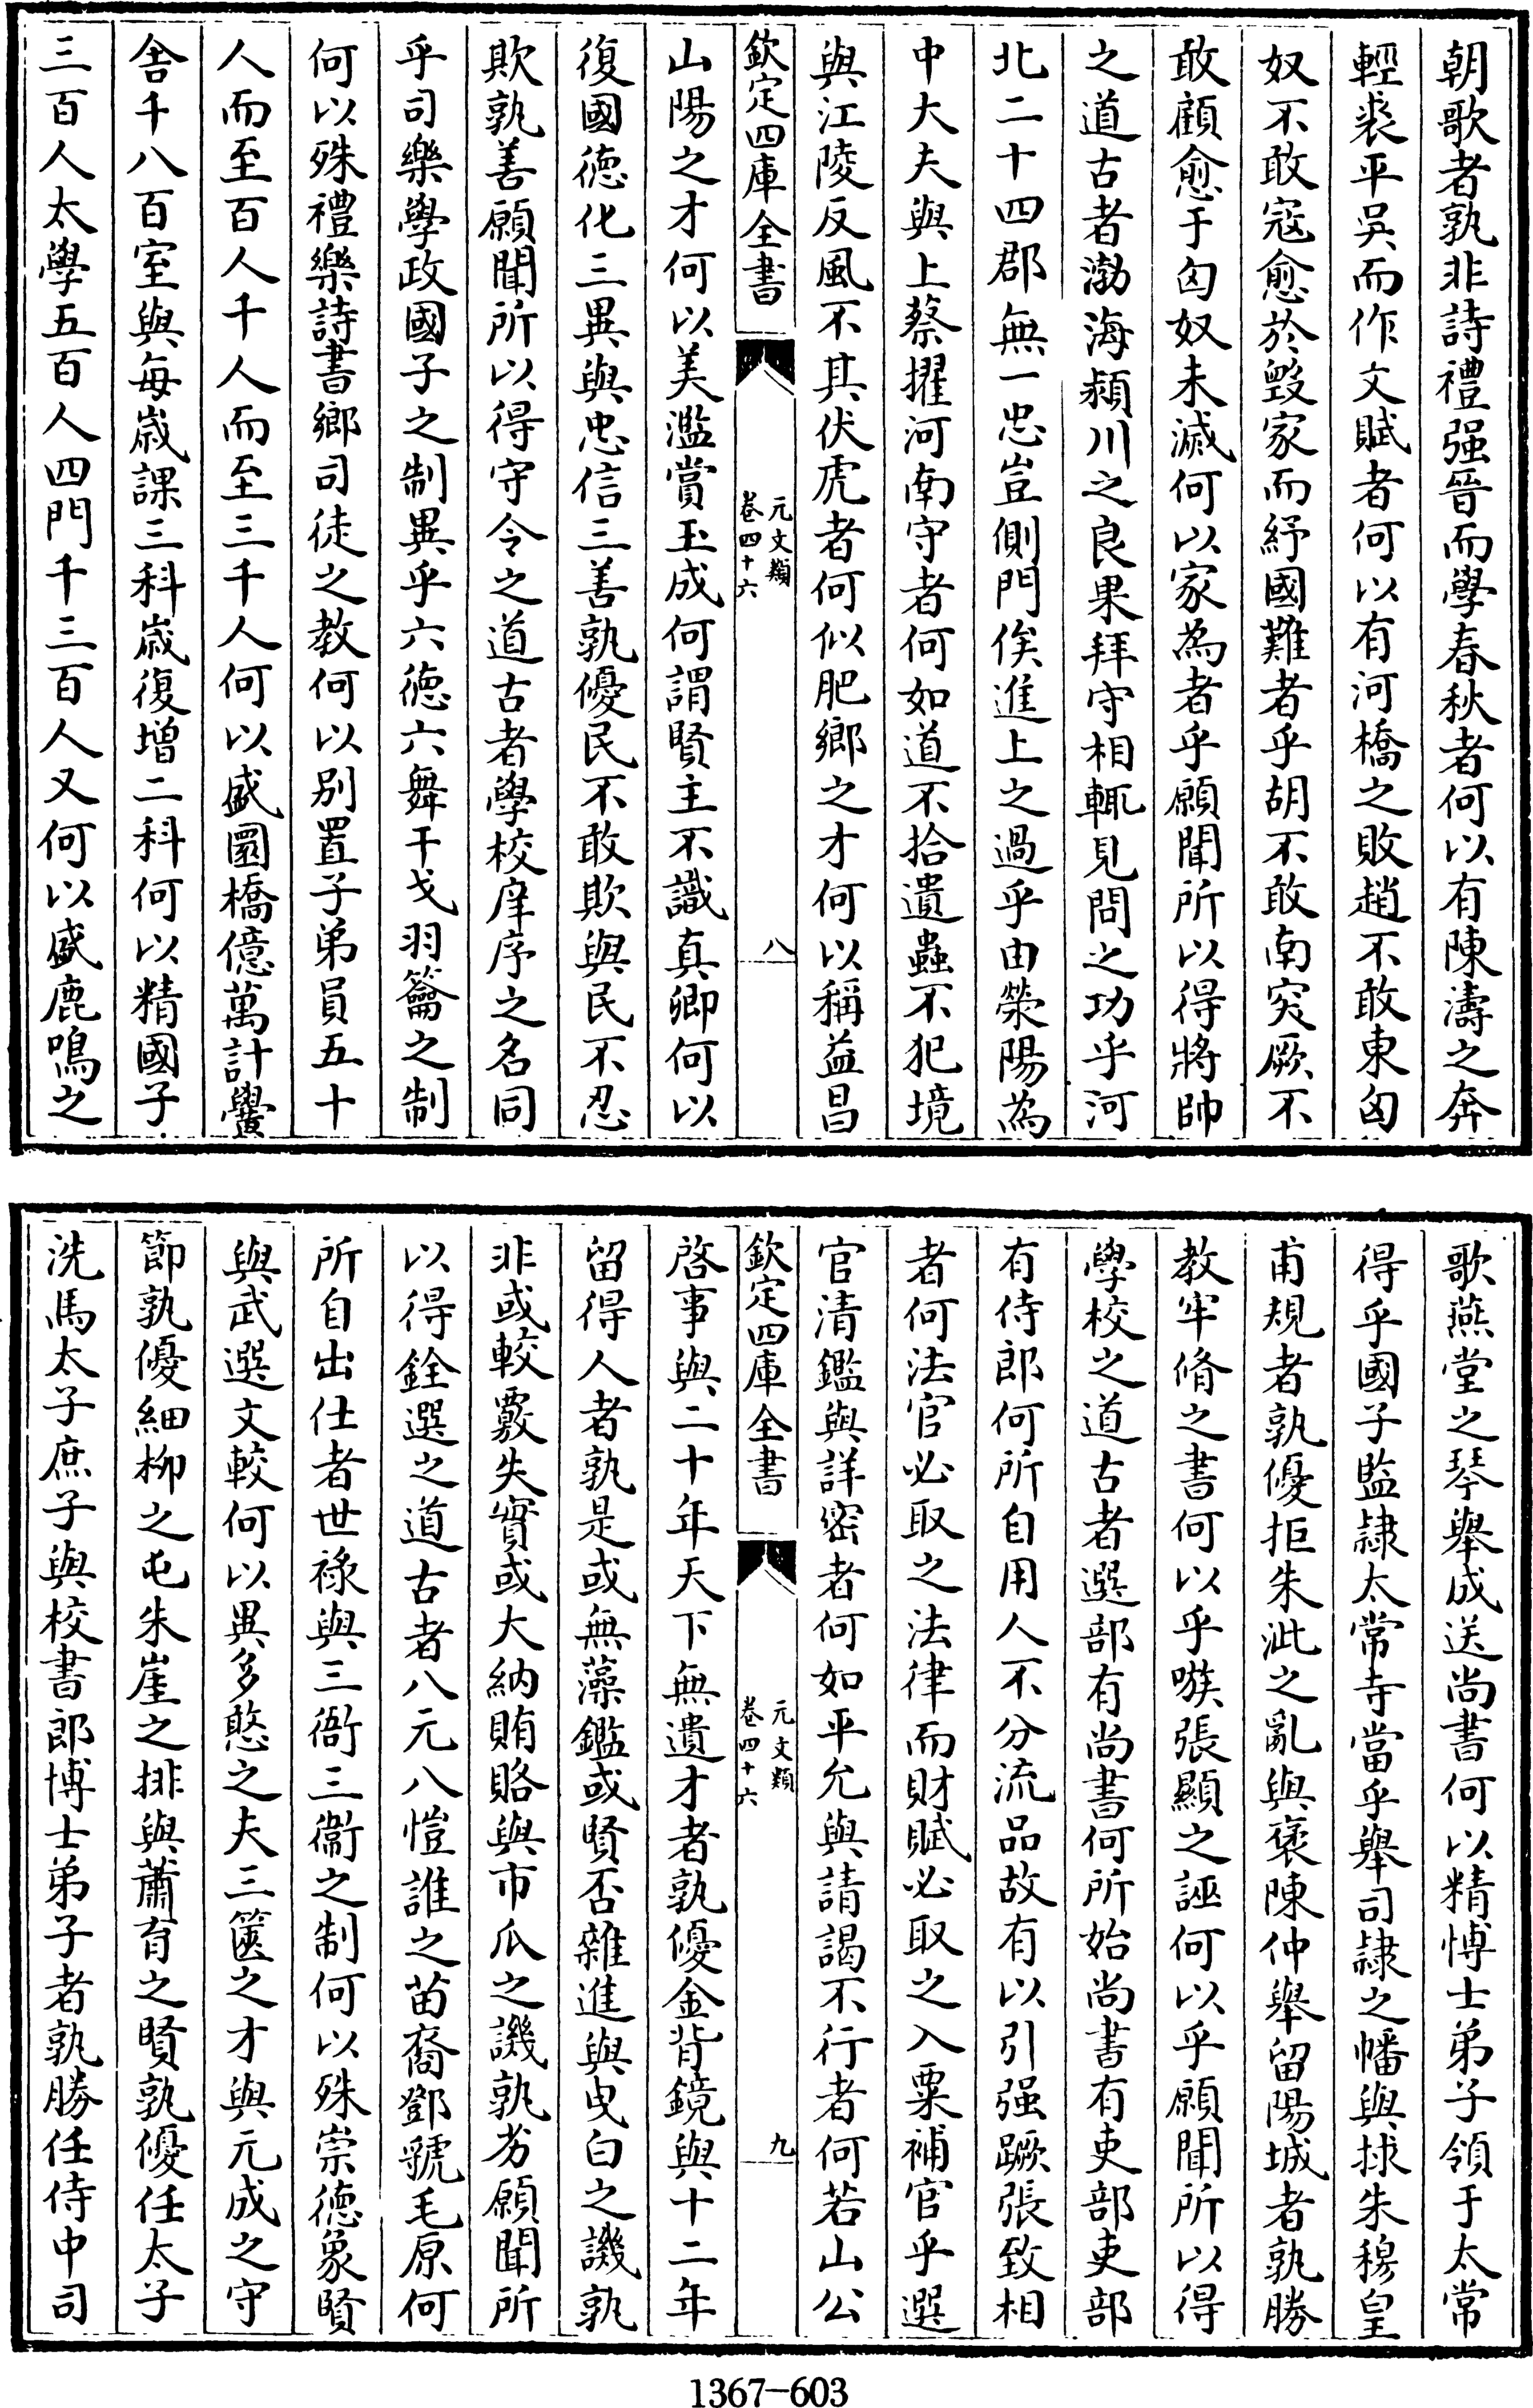 朝歌者孰非詩禮强晉而學春秋者何以有陳濤之奔
輕裘平吳而作文賦者何以有河橋之敗趙不敢東匈
奴不敢寇愈於毀家而紓國難者乎胡不敢南突厥不
敢顧愈于匈奴未滅何以家為者乎願聞所以得將帥
之道古者渤海潁川之良果拜守相輒見問之功乎河
北二十四郡無一忠豈側門俟進上之過乎由滎陽為
中大夫與上蔡擢河南守者何如道不拾遺蟲不犯境
與江陵反風不其伏虎者何似肥鄉之才何以稱益昌
欽定四庫全書
元文類
卷四十六
八
山陽之才何以美濫賞玉成何謂賢主不識真卿何以
復國德化三異與忠信三善孰優民不敢欺與民不忍
欺孰善願聞所以得守令之道古者學校庠序之名同
乎司樂學政國子之制異乎六德六舞干戈羽籥之制
何以殊禮樂詩書鄉司徒之教何以别置子弟員五十
人而至百人千人而至三千人何以盛圜橋億萬計黌
舍千八百室與每歳課三科歳復增二科何以精國子
三百人太學五百人四門千三百人又何以盛鹿鳴之
歌燕堂之琴舉成送尚書何以精博士弟子領于太常
得乎國子監隷太常寺當乎舉司隷之幡與捄朱穆皇
甫規者孰優拒朱泚之亂與褒陳仲舉留陽城者孰勝
教牢脩之書何以乎嗾張顯之誣何以乎願聞所以得
學校之道古者選部有尚書何所始尚書有吏部吏部
有侍郎何所自用人不分流品故有以引强蹶張致相
者何法官必取之法律而財賦必取之入粟補官乎選
官清鑑與詳密者何如平允與請謁不行者何若山公
欽定四庫全書
元文類
卷四十六
九
啓事與二十年天下無遺才者孰優金背鏡與十二年
留得人者孰是或無藻鑑或賢否雜進與曳白之譏孰
非或較覈失實或大納賄賂與市瓜之譏孰劣願聞所
以得銓選之道古者八元八愷誰之苗裔鄧虢毛原何
所自出仕者世祿與三衙三衞之制何以殊崇德象賢
與武選文較何以異多憨之夫三篋之才與元成之守
節孰優細柳之屯朱崖之排與蕭育之賢孰優任太子
洗馬太子庶子與校書郎博士弟子者孰勝任侍中司
1367-603